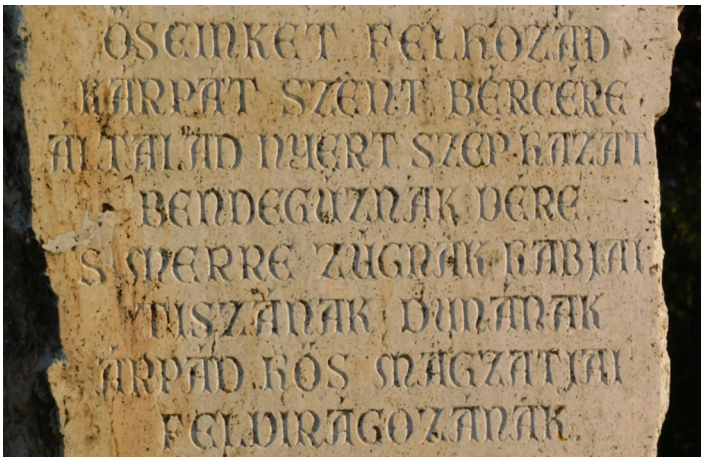 ŐSEINKET FELHOZÁD
KÁRPÁT SZENT BÉRCÉRE
ÁLTALAD NYERT SZÉP HAZÁT
BENDEGÚZNAK VÉRE.
S MERRE ZÚGNAK HABJAI
TISZÁNAK DUNÁNAK
ÁRPÁD HŐS MAGZATJAI
FELVIRÁGOZÁNAK.